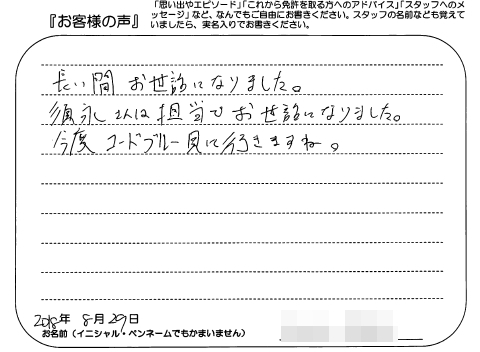 『お客様の声』
「思い出やエピソード」「これから免許を取る方へのアドバイス」「スタッフへのメ
ッセージ」など、なんでもご自由にお書きください。スタッフの名前なども覚えて
いましたら、実名入りでお書きください。
長い間 お世話になりました。
須永さんは担当でお世話になりました。
今度 コードブルー見に行きますね。
2018年 8月29日
お名前(イニシャル・ペンネームでもかまいません)